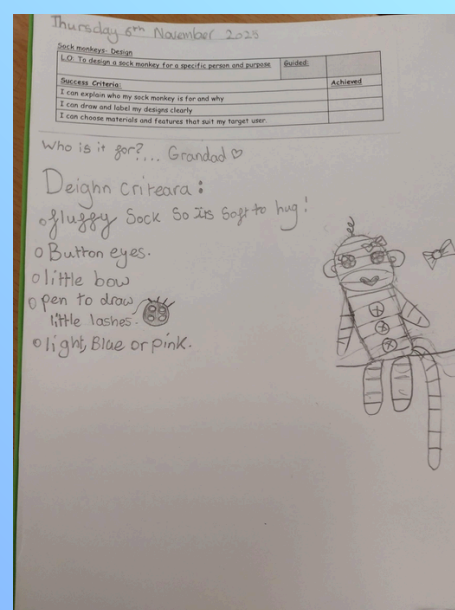 Thursday 6th November 2025
Sock monkeys- Design
L.O: To design a sock monkey for a specific person and purpose Guided:
Success Criteria: Achieved
I can explain who my sock monkey is for and why
I can draw and label my designs clearly
I can choose materials and features that suit my target user.
Who is it for?... Grandad♡
Deighn criteara:
fluffy Sock So its Soft to hug!
Button eyes.
little bow
pen to draw
little lashes.
light, Blue or pink.